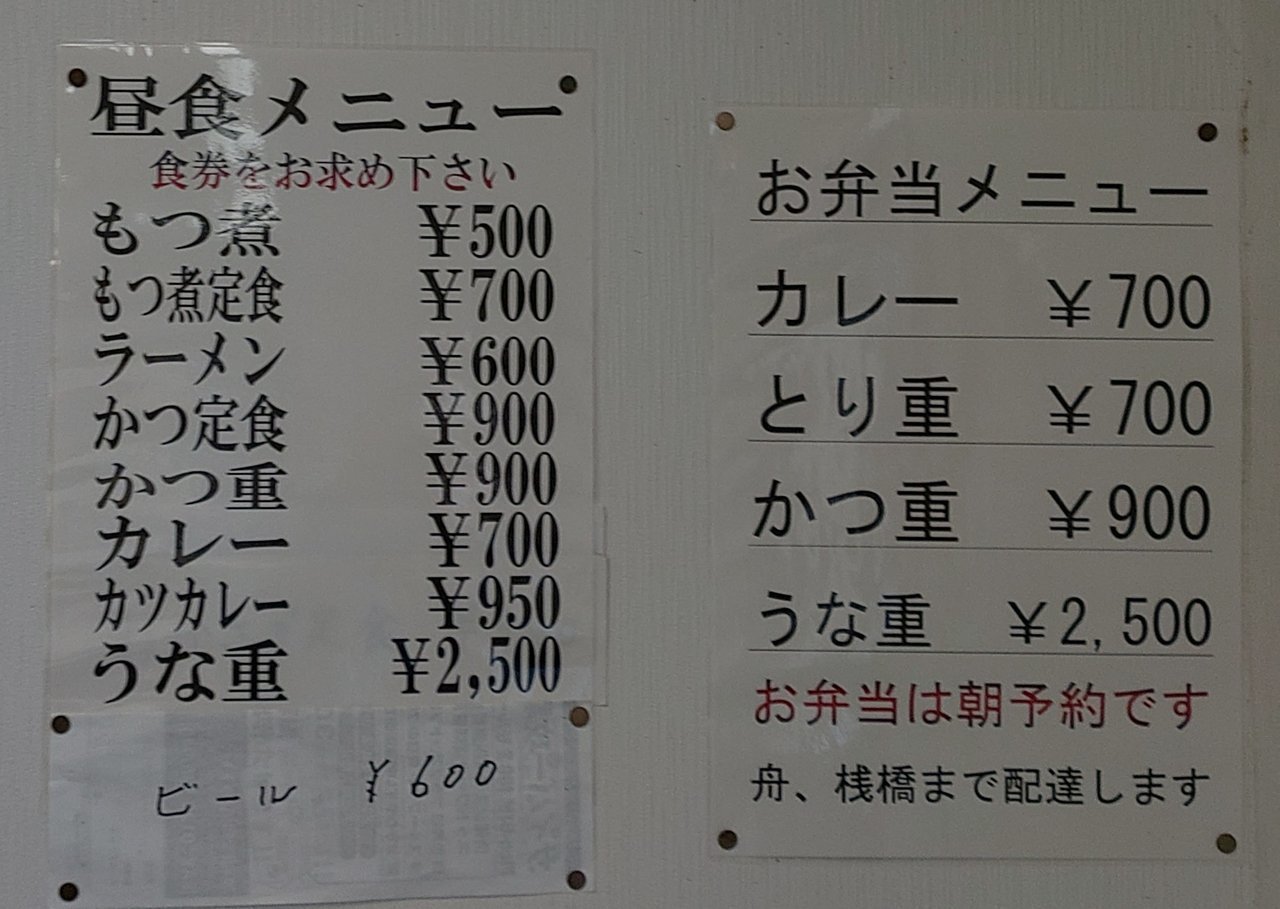 昼食メニュー
食券をお求め下さい
もつ煮 ¥500
もつ煮定食 ¥700
ラーメン ¥600
かつ定食 ¥900
かつ重 ¥900
カレー ¥700
カツカレー ¥950
うな重 ¥2,500
ビール ¥600
お弁当メニュー
カレー ¥700
とり重 ¥700
かつ重 ¥900
うな重 ¥2,500
お弁当は朝予約です
舟、桟橋まで配達します